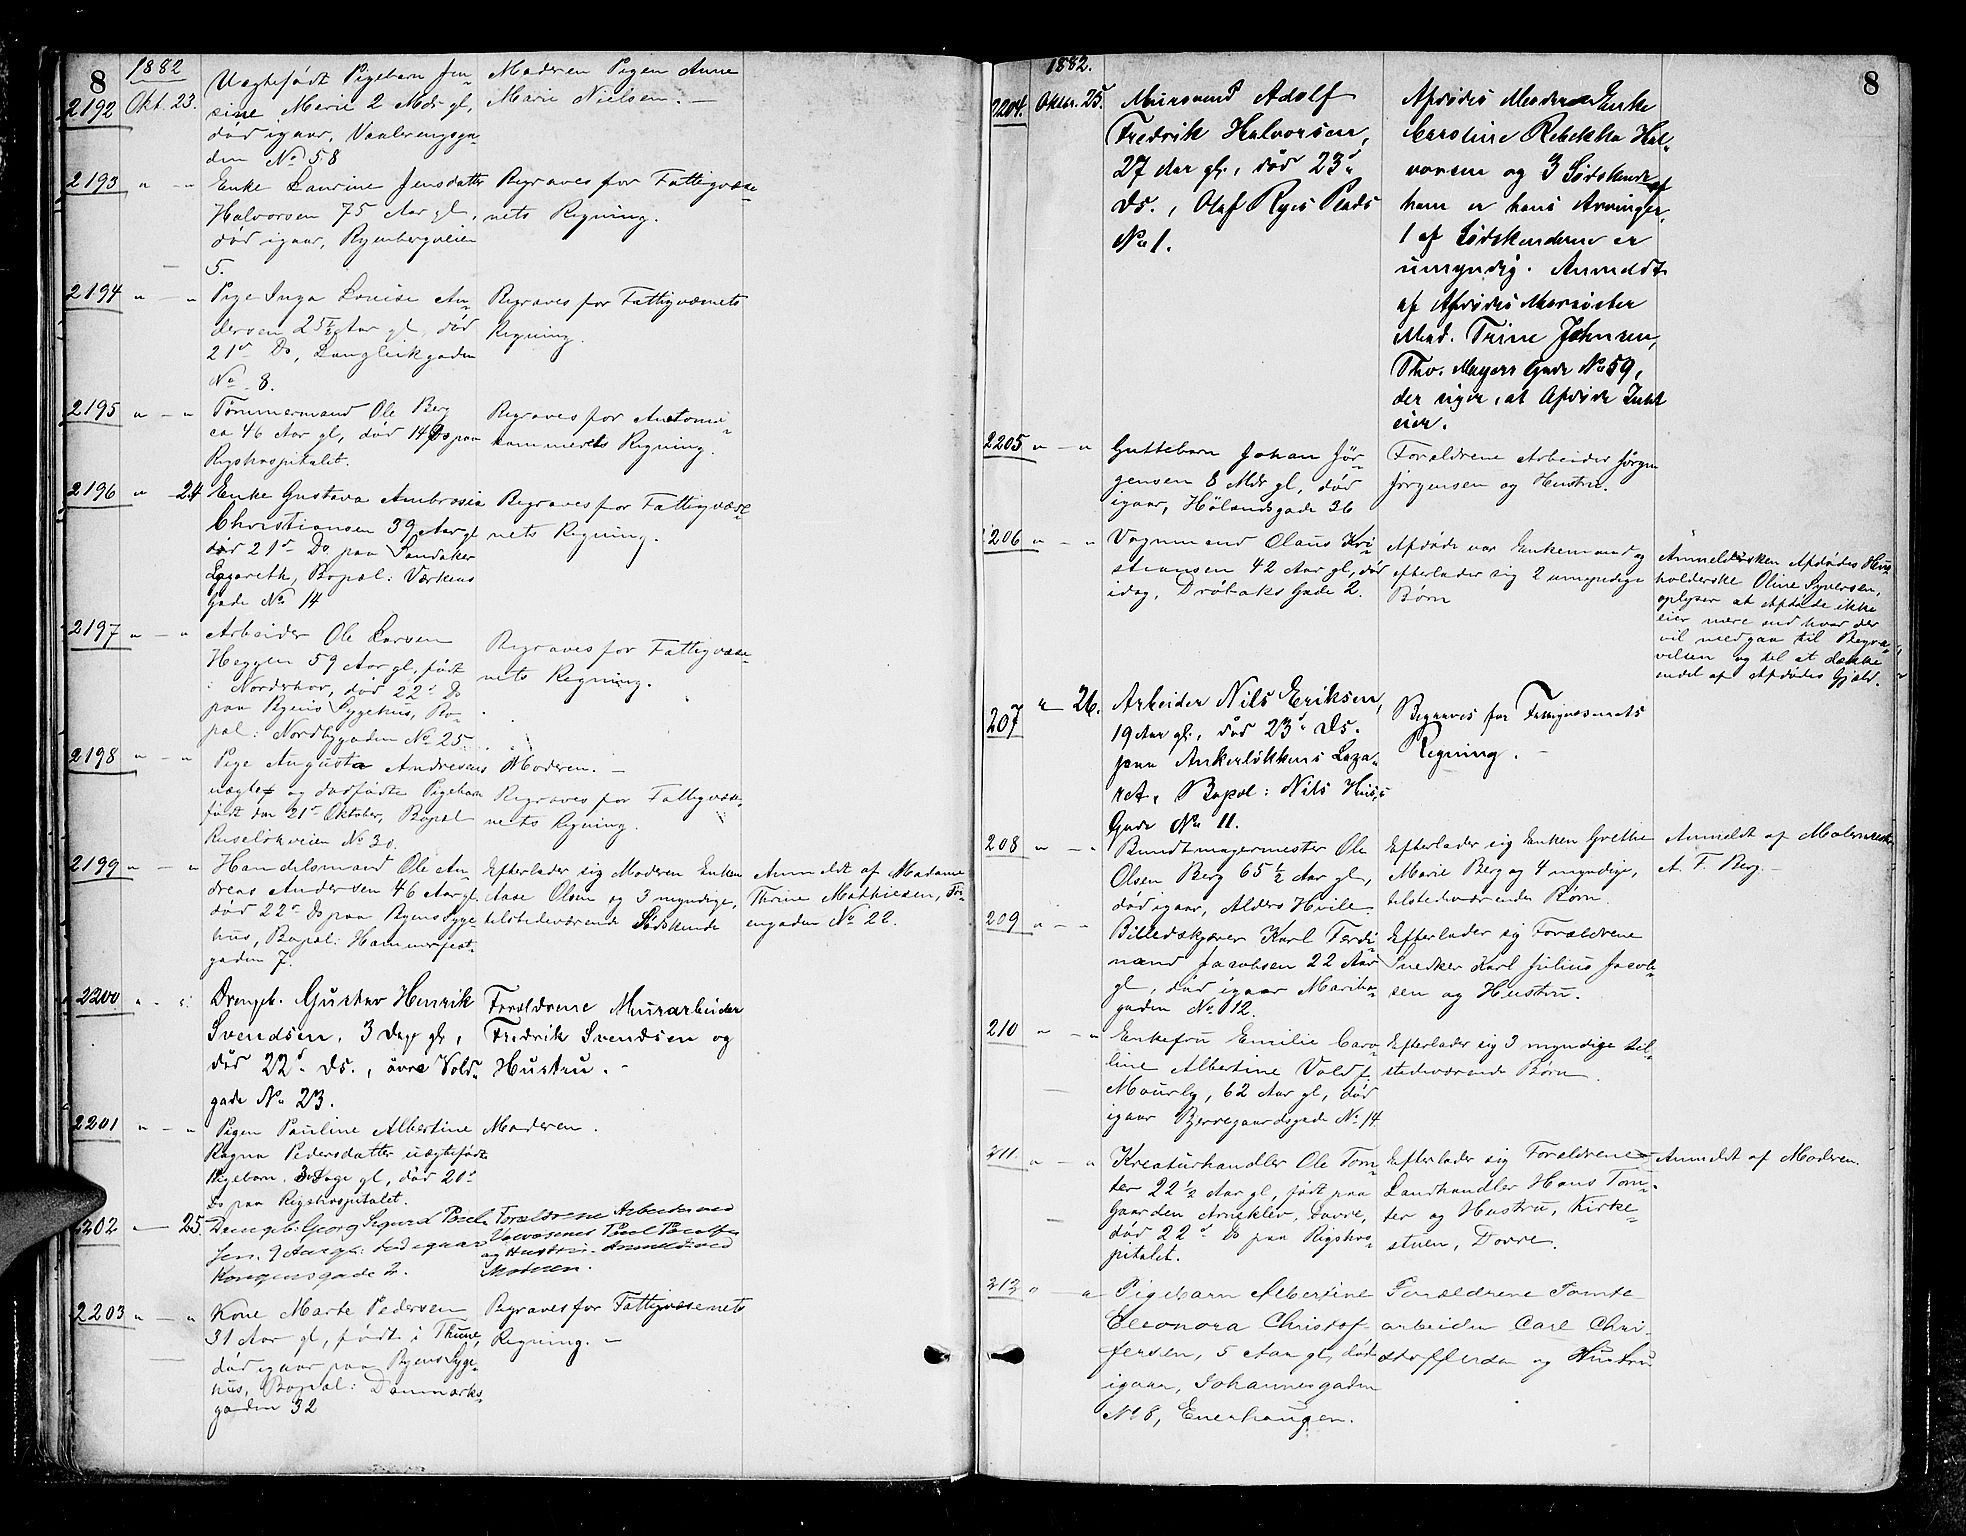 8
1882
2192 Okt. 23. Uægtefødt Pigebarn Jen-
sine Marie 2 Mdr gl,
død igaar, Vaalerengsga-
den No 58
Moderen Pigen Anne
Marie Nielsen. —
2193 " - " Enke Laurine Jensdatter
Halvorsen 75 Aar gl,
død igaar, Ryenbergveien
5.
Begraves for Fattigvæse-
nets Regning.
2194 " - " Pige Inga Lovise An-
dersen 25½ Aar gl, død
21de Ds, Langleikgaden
No 8.
Begraves for Fattigvæsnets
Regning.
2195 " - " Tømmermand Ole Berg
ca 46 Aar gl, død 14 Ds paa
Rigshospitalet.
Begraves for Anatomi-
kammerets Regning.
2196 " - 24 Enke Gustava Ambrosia
Christiansen 39 Aar gl
død 21de Ds paa Sandaker
Lazareth, Bopæl: Værkens
Gade No 14
Begraves for Fattigvæse-
nets Regning.
2197 " - " Arbeider Ole Larsen
Heggen 59 Aar gl, født
i Norderhov, død 22de Ds
paa Byens Sygehus, Bo-
pæl: Nordbygaden No 25
Begraves for Fattigvæse-
nets Regning.
2198 " - " Pige Augusta Andresens
uægte og dødfødte Pigebarn
født den 21de Oktober, Bopæl
Ruseløkveien No 30.
Moderen. —
Begraves for Fattigvæse-
nets Regning.
2199 " - " Handelsmand Ole An-
dreas Andersen 46 Aar gl.
død 22de Ds paa Byens Syge-
hus, Bopæl: Hammerfest-
gaden 7.
Efterlader sig Moderen Enken
Aase Olsen og 3 myndige,
tilstedeværende Sødskende
Anmeldt af Madame
Thrine Mathiesen, Tø-
engaden No 22.
2200 " - " Drengeb. Gustav Henrik
Svendsen, 3 Dage gl,
død 22de Ds., øvre Vold-
gade No 23.
Forældrene Murarbeider
Fredrik Svendsen og
Hustru. -
2201 " - " Pigen Pauline Albertine
Ragna Pedersdatter uægtefødte
Pigebarn. 3 Dage gl, død 20de
Ds paa Rigshospitalet.
Moderen.
2202 " - 25. Drengeb: Georg Sigurd Paul-
sen. 9 Aar gl: død igaar
Kongensgade 2.
Forældrene Arbeider ved
Paul Paulsen
og Hustru. Anmeldt ved
Moderen.
2203 " - " Kone Marte Pedersen
31 Aar gl, født i Thune,
død igaar paa Byens Syge-
hus, Bopæl: Danmarks-
gaden 32
Begraves for Fattigvæsenets
Regning. -
8
1882.
2204. Oktbr. 25. Mursvend Adolf
Fredrik Halvorsen,
27 Aar gl., død 23de
Ds., Olaf Ryes Plads
No 1.
Afdødes Moder Enke
Caroline Rebekka Hal-
vorsen og 3 Sødskende af
ham er hans Arvinger,
1 af Sødskenderne er
umyndig. Anmeldt
af Afdødes Morsøster
Mad. Trine Johnsen,
Thv. Meyers Gade No 59,
der siger, at Afdøde Intet
eier.
2205 " - " Guttebarn Johan Jør-
gensen 8 Mdr gl, død
igaar, Hølandsgade 36
Forældrene Arbeider Jørgen
Jørgensen og Hustru.
206 " - " Vognmand Olaus Kri-
stiansen 42 Aar gl, død
idag, Drøbaks Gade 2.
Afdøde var Enkemand og
efterlader sig 2 umyndige
Børn
Anmeldersken Afdødes Hus-
holderske Oline Syversen,
oplyser at Afdøde ikke
eier mere end hvad der
vil medgaa til Begra-
velsen og til at dække
endel af Afdødes Gjæld.
207 " - 26. Arbeider Nils Eriksen,
19 Aar gl., død 23de Ds.
paa Ankerløkkens Laza-
ret, Bopæl: Nils Huus
Gade No 11.
Begraves for Fattigvæsenets
Regning. -
208 " - " Bundtmagermester Ole
Olsen Berg 65½ Aar gl,
død igaar, Alders Hvile.
Efterlader sig Enken Grethe
Marie Berg og 4 myndige,
tilstedeværende Børn.
Anmeldt af Malermester
A. F. Berg. -
209 " - " Billedskjærer Karl Ferdi-
nand Jacobsen 22 Aar
gl, død igaar Maribo-
gaden No 12.
Efterlader sig Forældrene
Snedker Karl Julius Jacob-
sen og Hustru.
210 " - " Enkefru Emilie Caro-
line Albertine Vold f.
Mourly, 62 Aar gl, død
igaar Bjerregaardsgade No 14
Efterlader sig 3 myndige til-
stedeværende Børn.
211 " - " Kreaturhandler Ole Tom-
ter 22½ Aar gl, født paa
Gaarden Arneklev, Dovre,
død 22de Ds paa Rigshos-
pitalet.
Efterlader sig Forældrene
Landhandler Hans Tom-
ter og Hustru, Kirke-
stuen, Dovre.
Anmeldt af Moderen.
212 " - " Pigebarn Albertine
Eleonora Christof-
fersen, 5 Aar gl, død
igaar, Johannesgaden
No 8, Enerhaugen.
Forældrene Tomte
arbeider Carl Chri-
stoffersen og Hustru